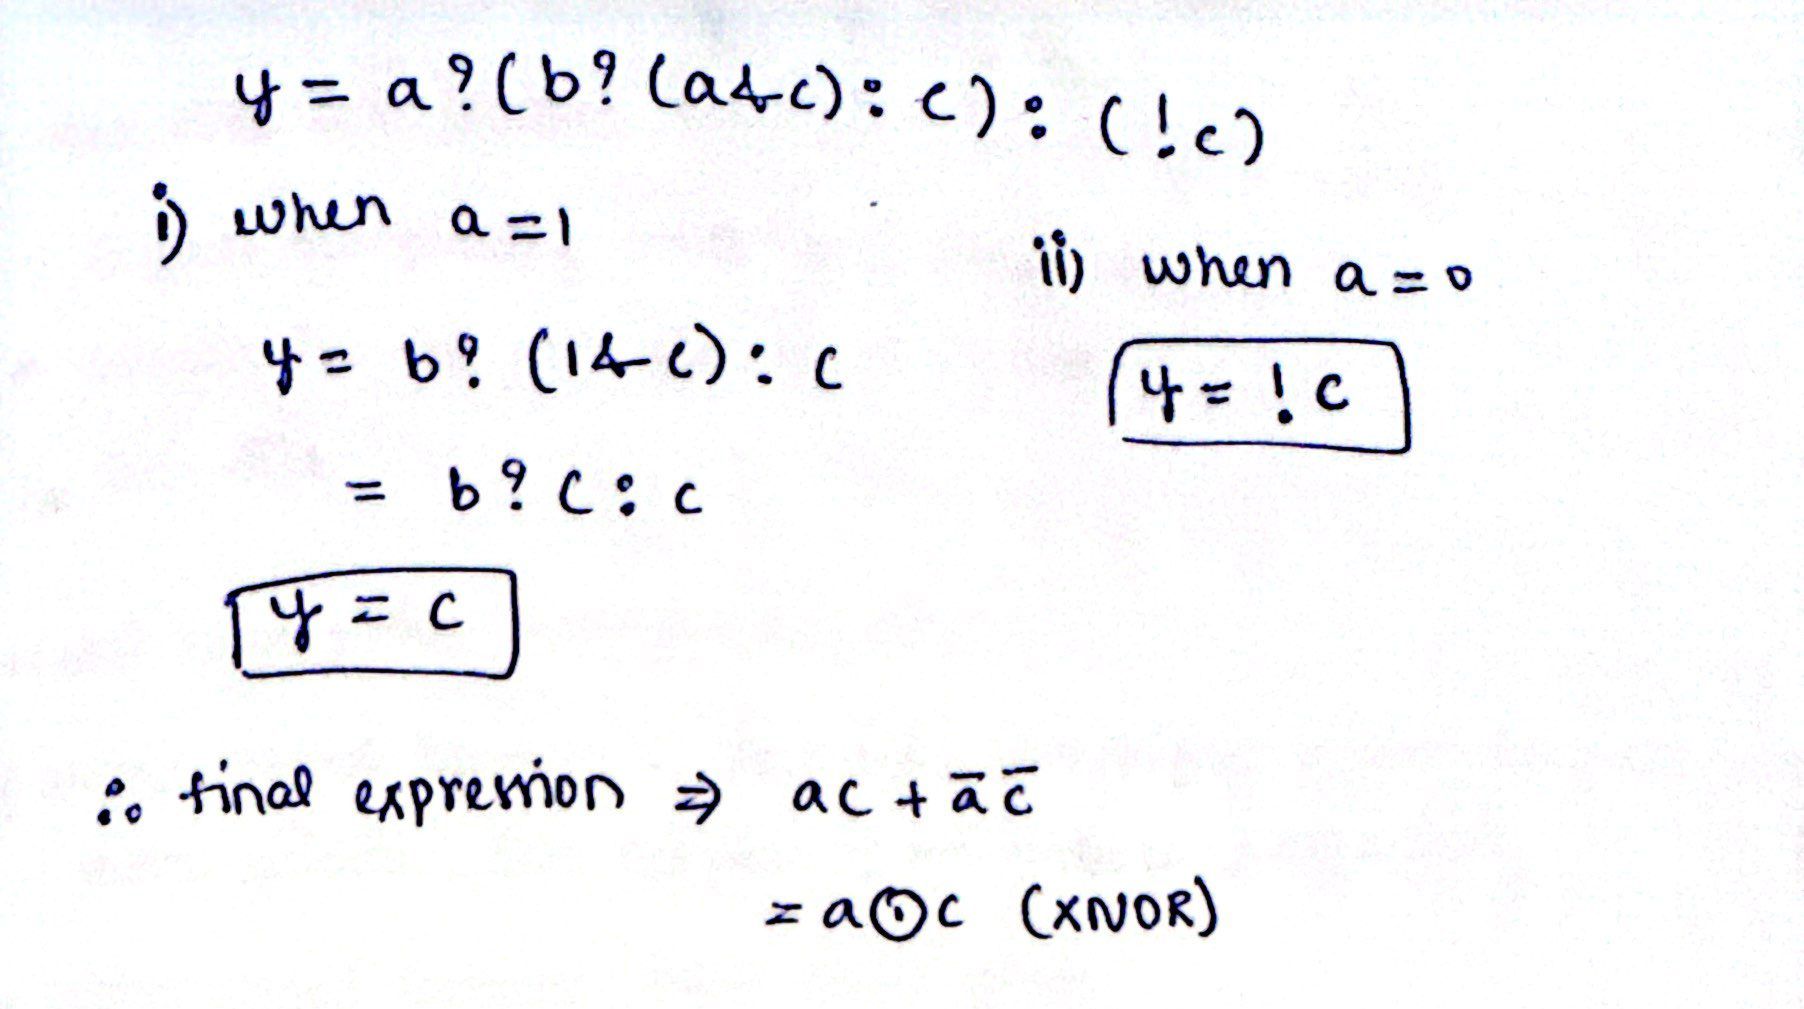 y = a ? (b ? (a & c) : c) : (!c)
i) when a = 1
y = b ? (1 & c) : c
= b ? c : c
y = c
ii) when a = 0
y = !c
∴ final expression ⇒ ac + a̅ c̅
= a ⊙ c (XNOR)